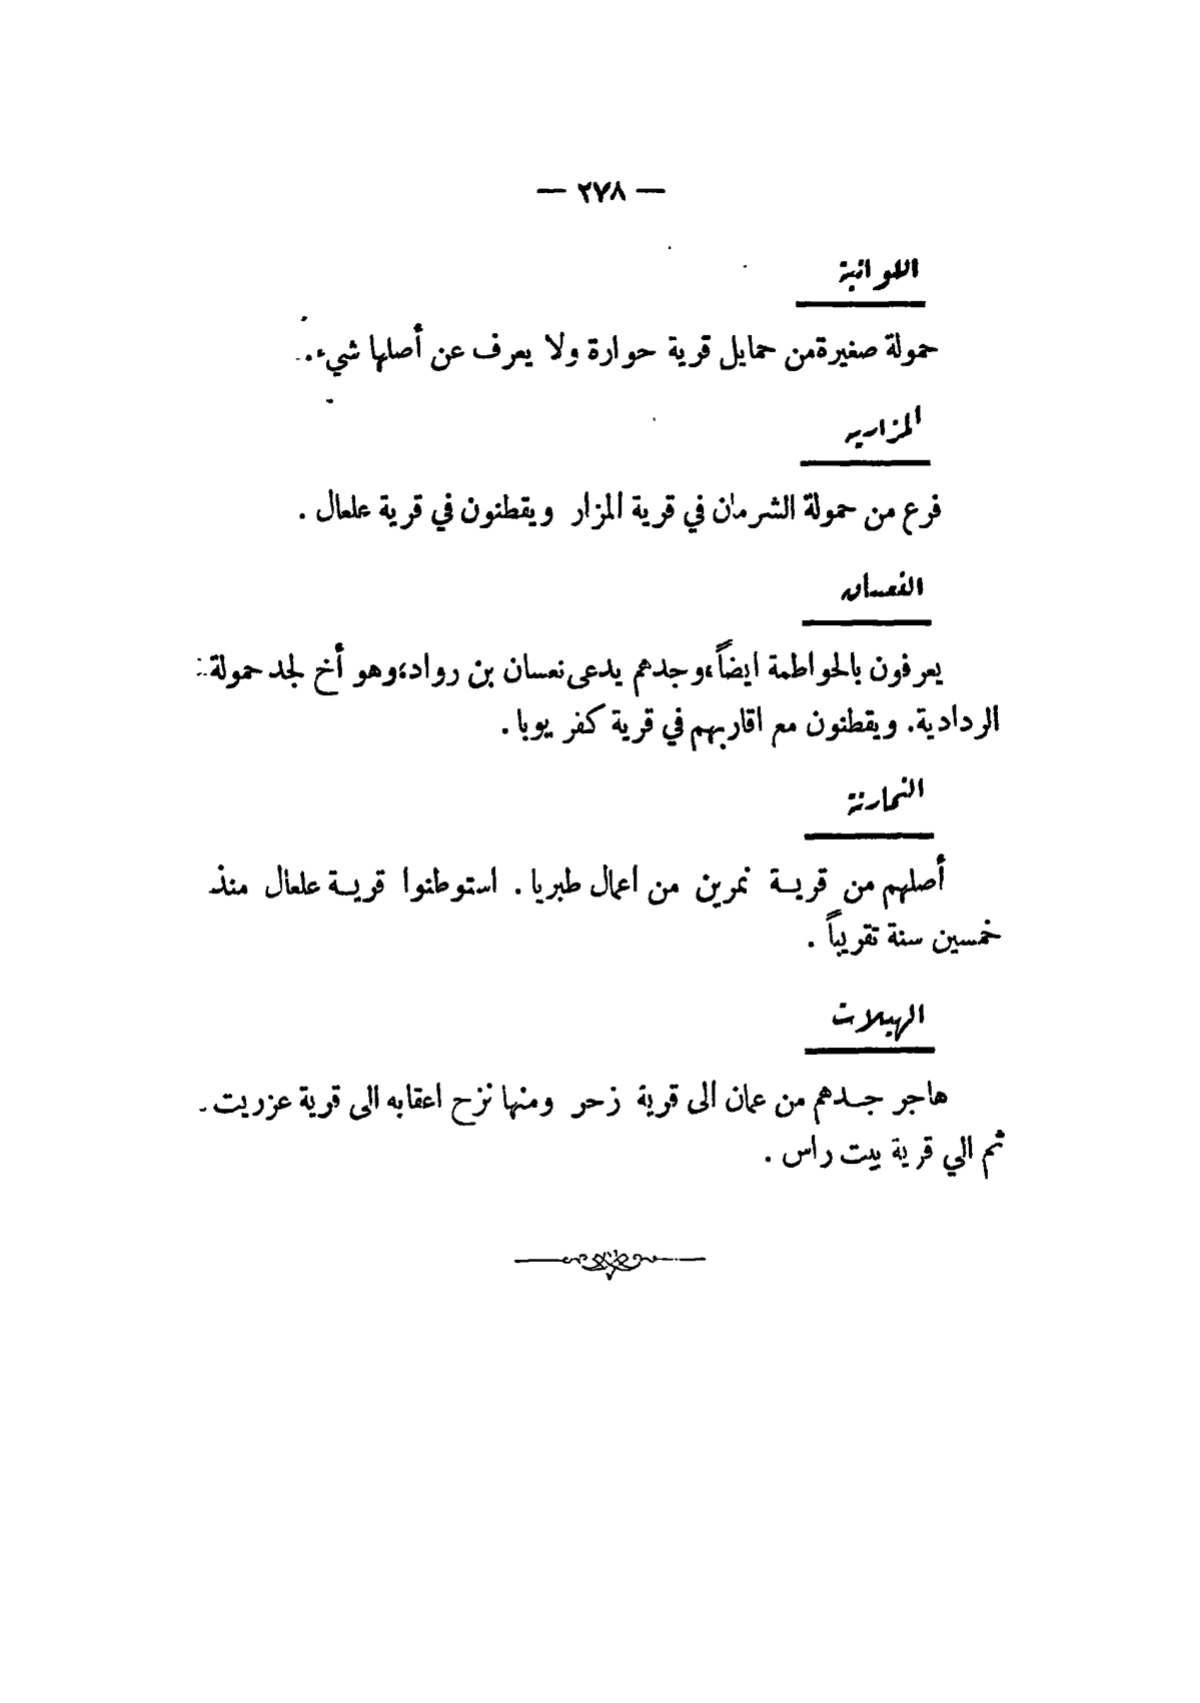 — ٢٧٨ —
اللوانية
حمولة صغيرة من حمايل قرية حوارة ولا يعرف عن أصلها شيء .
المزاريه
فرع من حمولة الشرمان في قرية المزار ويقطنون في قرية علعال .
النعسان
يعرفون بالحواطمة ايضاً، وجدهم يدعى نعسان بن رواد، وهو أخ لجد حمولة
الردادية. ويقطنون مع اقاربهم في قرية كفر يوبا .
النمارنة
أصلهم من قرية نمرين من اعمال طبريا . استوطنوا قرية علعال منذ
خمسين سنة تقريباً .
الهيلات
هاجر جدهم من عمان الى قرية زحر ومنها نزح اعقابه الى قرية عزريت
ثم الي قرية بيت راس .